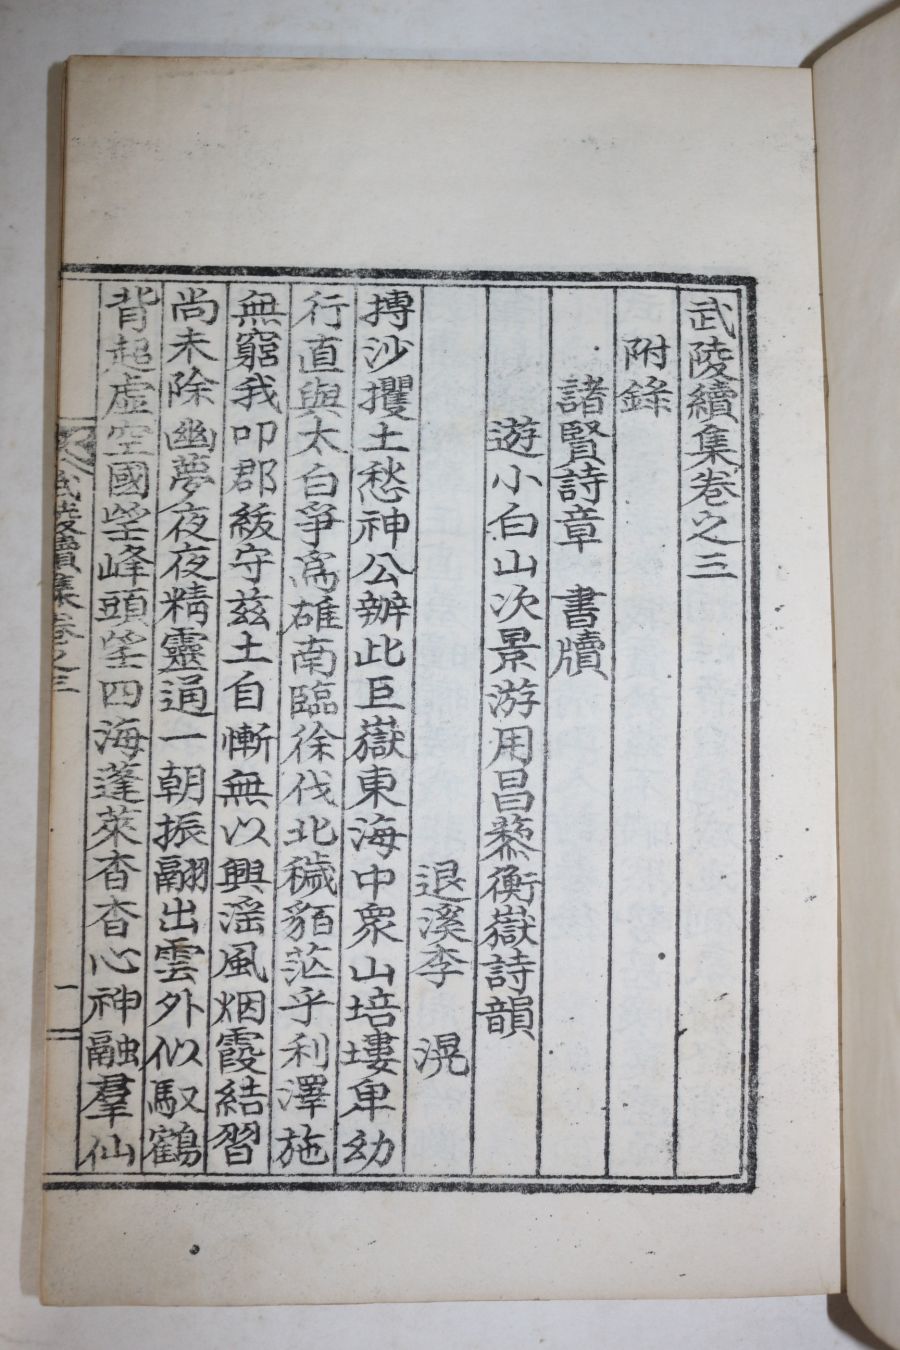 武陵續集卷之三
附錄
諸賢詩章 書牘
遊小白山次景游用昌黎衡嶽詩韻
退溪李 滉
摶沙攫土愁神公辦此巨嶽東海中衆山培塿卑幼
行直與太白爭爲雄南臨徐伐北穢貊茫乎利澤施
無窮我叨郡紱守茲土自慚無以興淫風烟霞結習
尚未除幽夢夜夜精靈通一朝振翮出雲外似馭鶴
背超虛空國望峰頭望四海蓬萊杳杳心神融羣仙
武陵續集卷之三 一